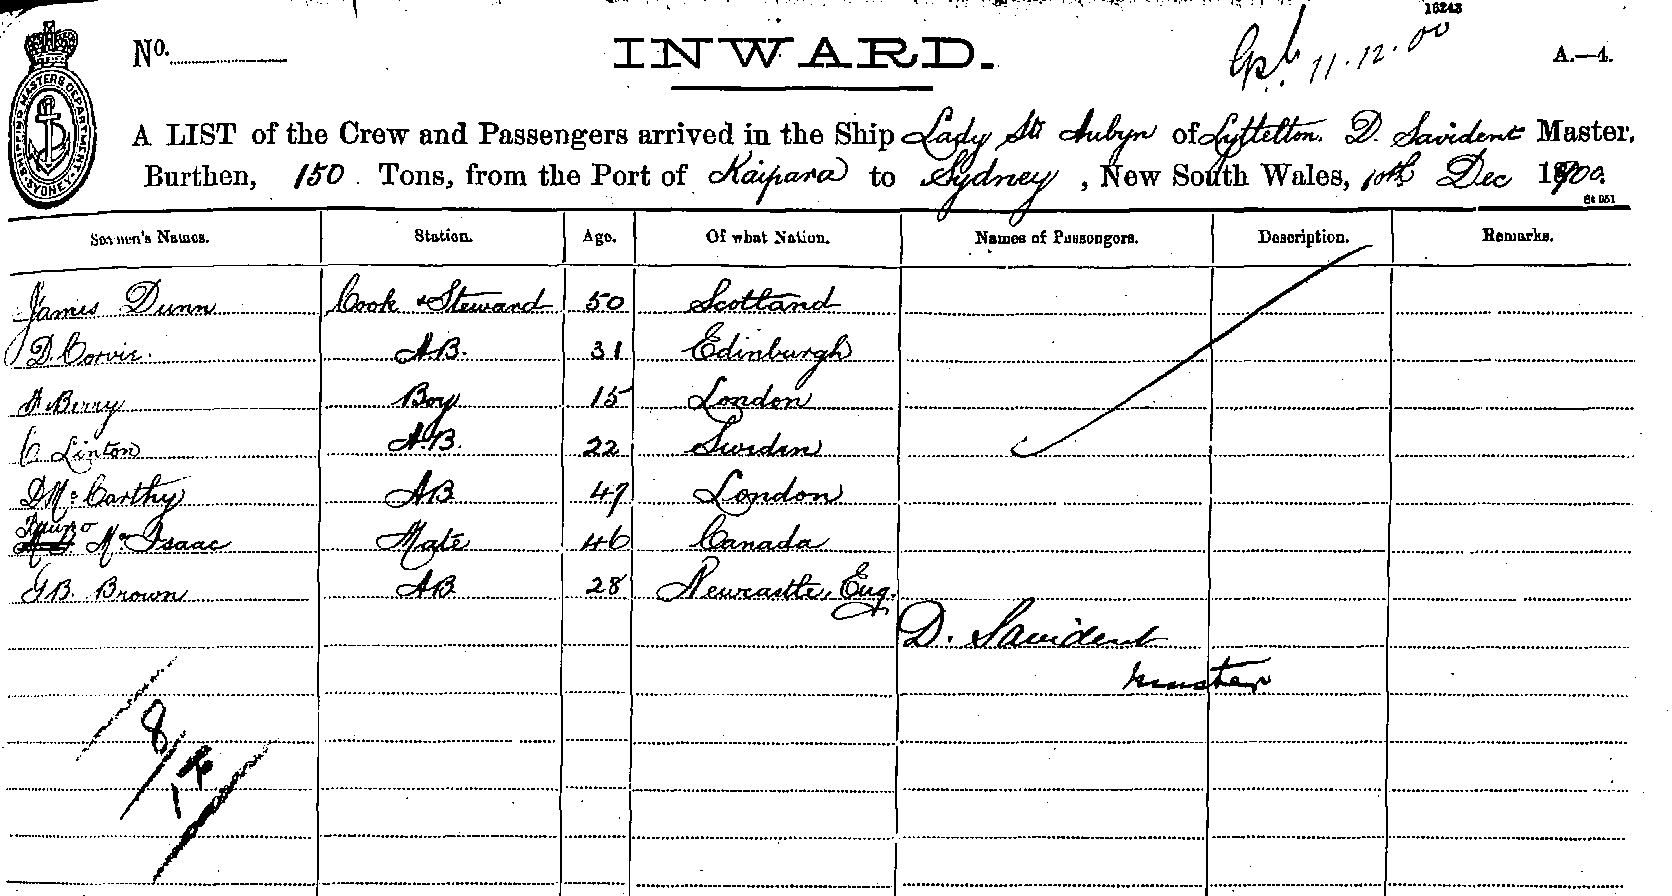 16243
No. INWARD. 11.12.00 A.—4.
SHIPPING MASTERS DEPARTMENT SYDNEY
A LIST of the Crew and Passengers arrived in the Ship Lady St Aubyn of Lyttelton. D. Savident Master,
Burthen, 150 Tons, from the Port of Kaipara to Sydney, New South Wales, 10th Dec 1900.
6t 051
Seamen's Names. Station. Age. Of what Nation. Names of Passengers. Description. Remarks.
James Dunn Cook & Steward 50 Scotland
D. Corvie. A.B. 31 Edinburgh
Berry Boy 15 London
C Linton A.B. 22 Sweden
D McCarthy AB 47 London
Bruno McIsaac Mate 46 Canada
G.B. Brown AB 28 Newcastle, Eng.
D. Savident
master
8/